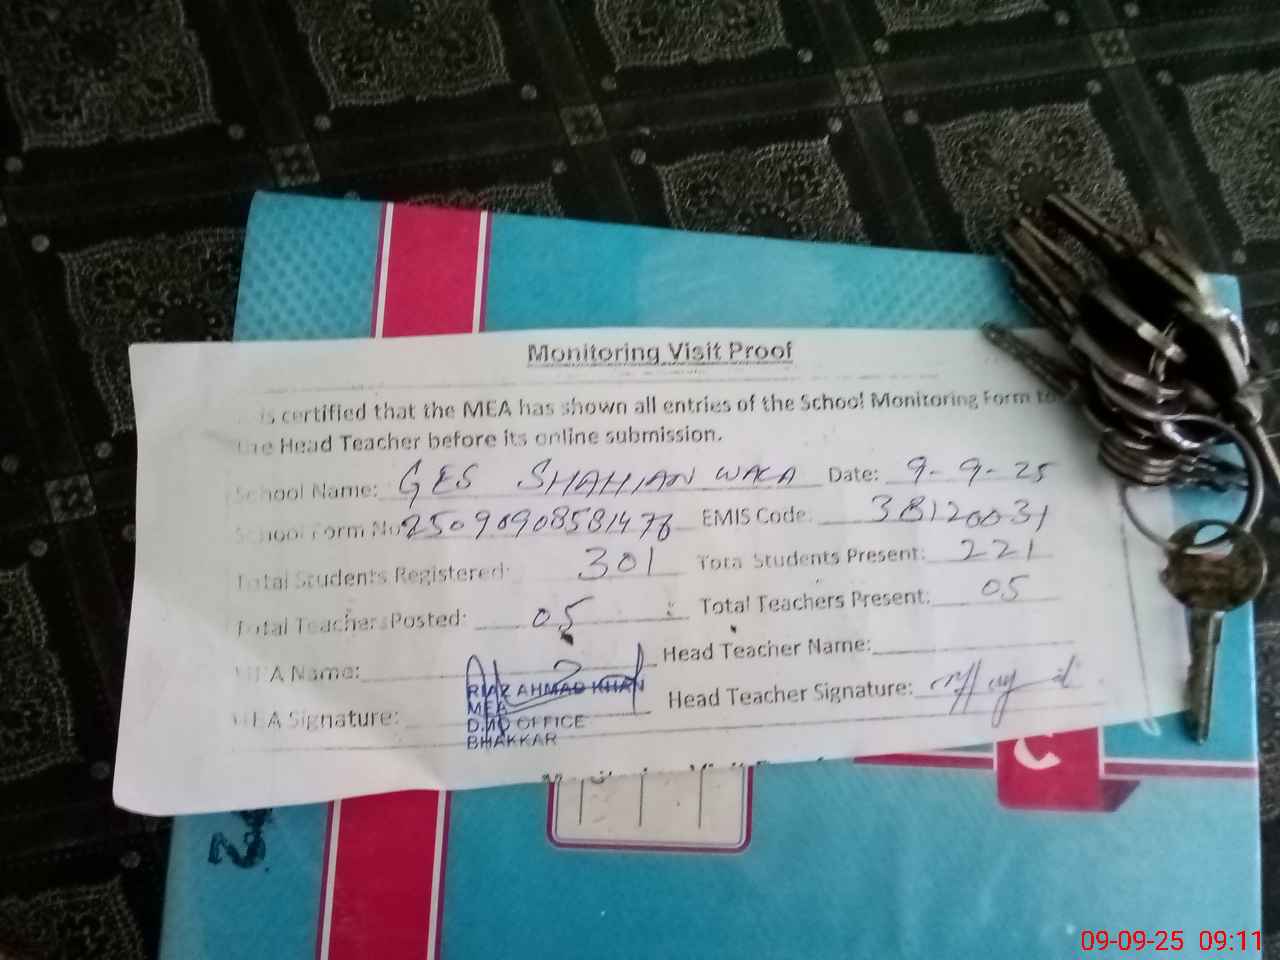 Monitoring Visit Proof
is certified that the MEA has shown all entries of the School Monitoring Form to
the Head Teacher before its online submission.
School Name: GES SHAHIAN WALA Date: 9-9-25
School Form No 25090908581476 EMIS Code. 38120031
Total Students Registered: 301 Total Students Present: 221
Total Teachers Posted: 05 Total Teachers Present: 05
MEA Name: Head Teacher Name:
RIAZ AHMAD KHAN
MEA
D.M.O OFFICE
BHAKKAR
MEA Signature: Head Teacher Signature:
09-09-25 09:11